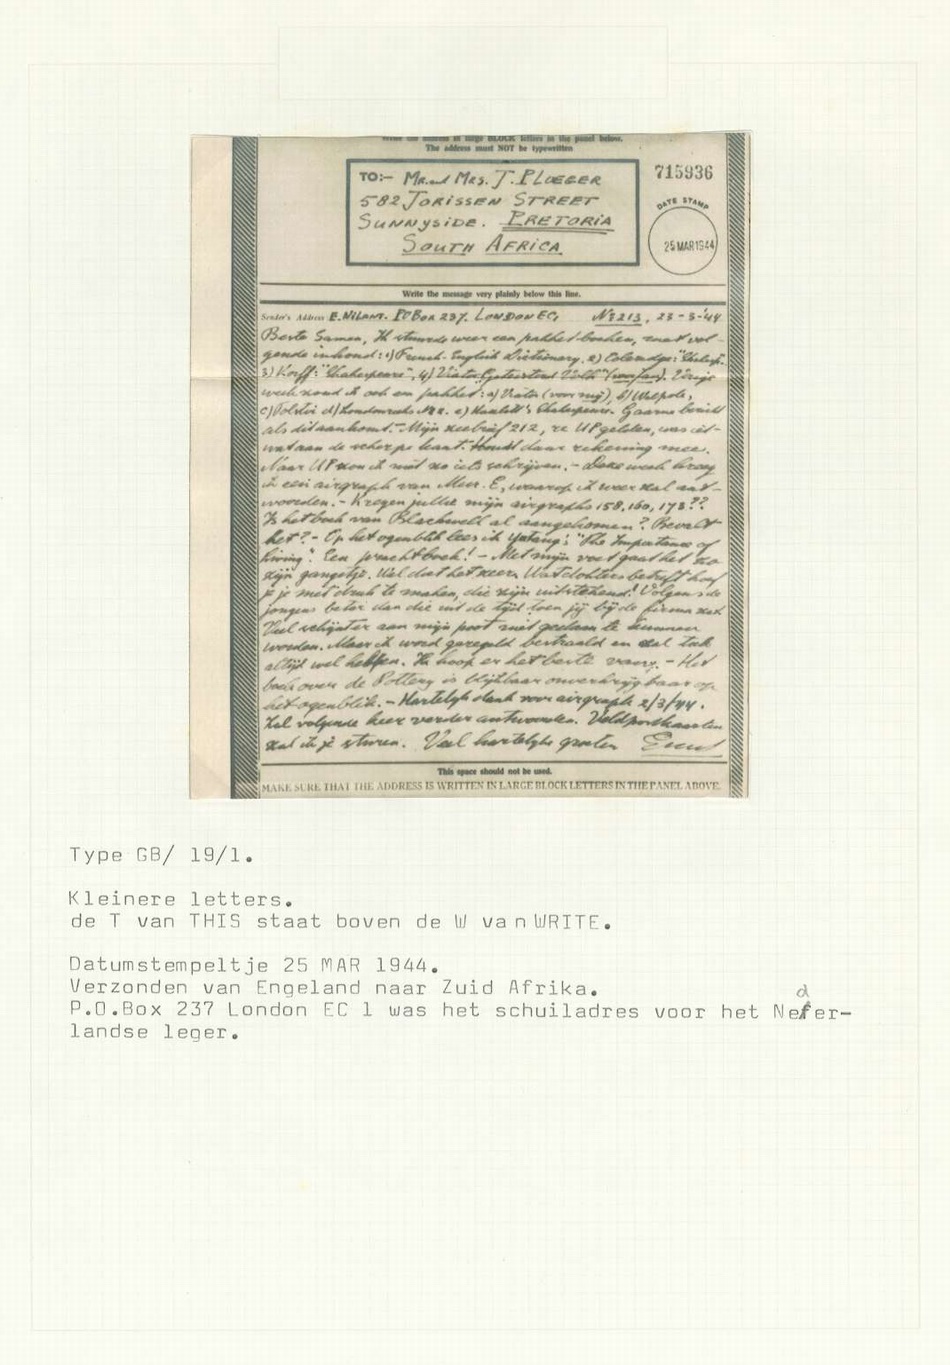 Write the address in large BLOCK letters in the panel below.
The address must NOT be typewritten
TO:- Mr. and Mrs. J. PLOEGER
582 JORISSEN STREET
SUNNYSIDE. PRETORIA
SOUTH AFRICA
715936
DATE STAMP
25 MAR 1944
Write the message very plainly below this line.
Sender's Address E. NILANT. PO Box 237. LONDON EC1 No 213, 23-3-'44
Beste Samen, Ik stuurde weer een pakket boeken, met vol-
gende inhoud: 1) French-English Dictionary, 2) Coleridge: "Shakesp."
3) Korff: "Shakespeare", 4) Viator, Geteisterd Volk (voor Jan). Vorige
week zond ik ook een pakket: a) Viator (voor mij), b) Walpole,
c) Tolstoi d) Londonsche No 2. e) Hazlitt's Shakespeare. Gaarne bericht
als dit aankomt. - Mijn zeebrief 212, re UP gelden, was iet-
wat aan de scherpe kant. Houdt daar rekening mee.
Naar UP kon ik niet zo iets schrijven. - Deze week kreeg
ik een airgraph van Mevr. E, waarop ik weer zal ant-
woorden. - Kregen jullie mijn airgraphs 158, 160, 173??
Is het boek van Blackwell al aangekomen? Bevalt
het? - Op het ogenblik lees ik Yutang's "The Importance of
living". Een prachtboek! - Met mijn voet gaat het zo
zijn gangetje. Wel dat het zeer. Wat dokters betreft hoef
je je niet druk te maken, die zijn uitstekend! Volgens de
jongens beter dan die uit de tijd toen jij bij de firma zat
Veel schijnt er aan mijn poot niet gedaan te kunnen
worden. Maar ik word geregeld bestraald en zal tuk
altijd wel helpen. Ik hoop er het beste van. - Het
boek over de Pottery is blijkbaar onverkrijgbaar op
het ogenblik. - Hartelijk dank voor airgraph 2/3/44.
Zal volgende keer verder antwoorden. Veldpostkaarten
zal ik je sturen. Veel hartelijke groeten
This space should not be used.
MAKE SURE THAT THE ADDRESS IS WRITTEN IN LARGE BLOCK LETTERS IN THE PANEL ABOVE.
Type GB/ 19/1.
Kleinere letters.
de T van THIS staat boven de W van WRITE.
Datumstempeltje 25 MAR 1944.
Verzonden van Engeland naar Zuid Afrika.
P.O.Box 237 London EC 1 was het schuiladres voor het Neder-
landse leger.